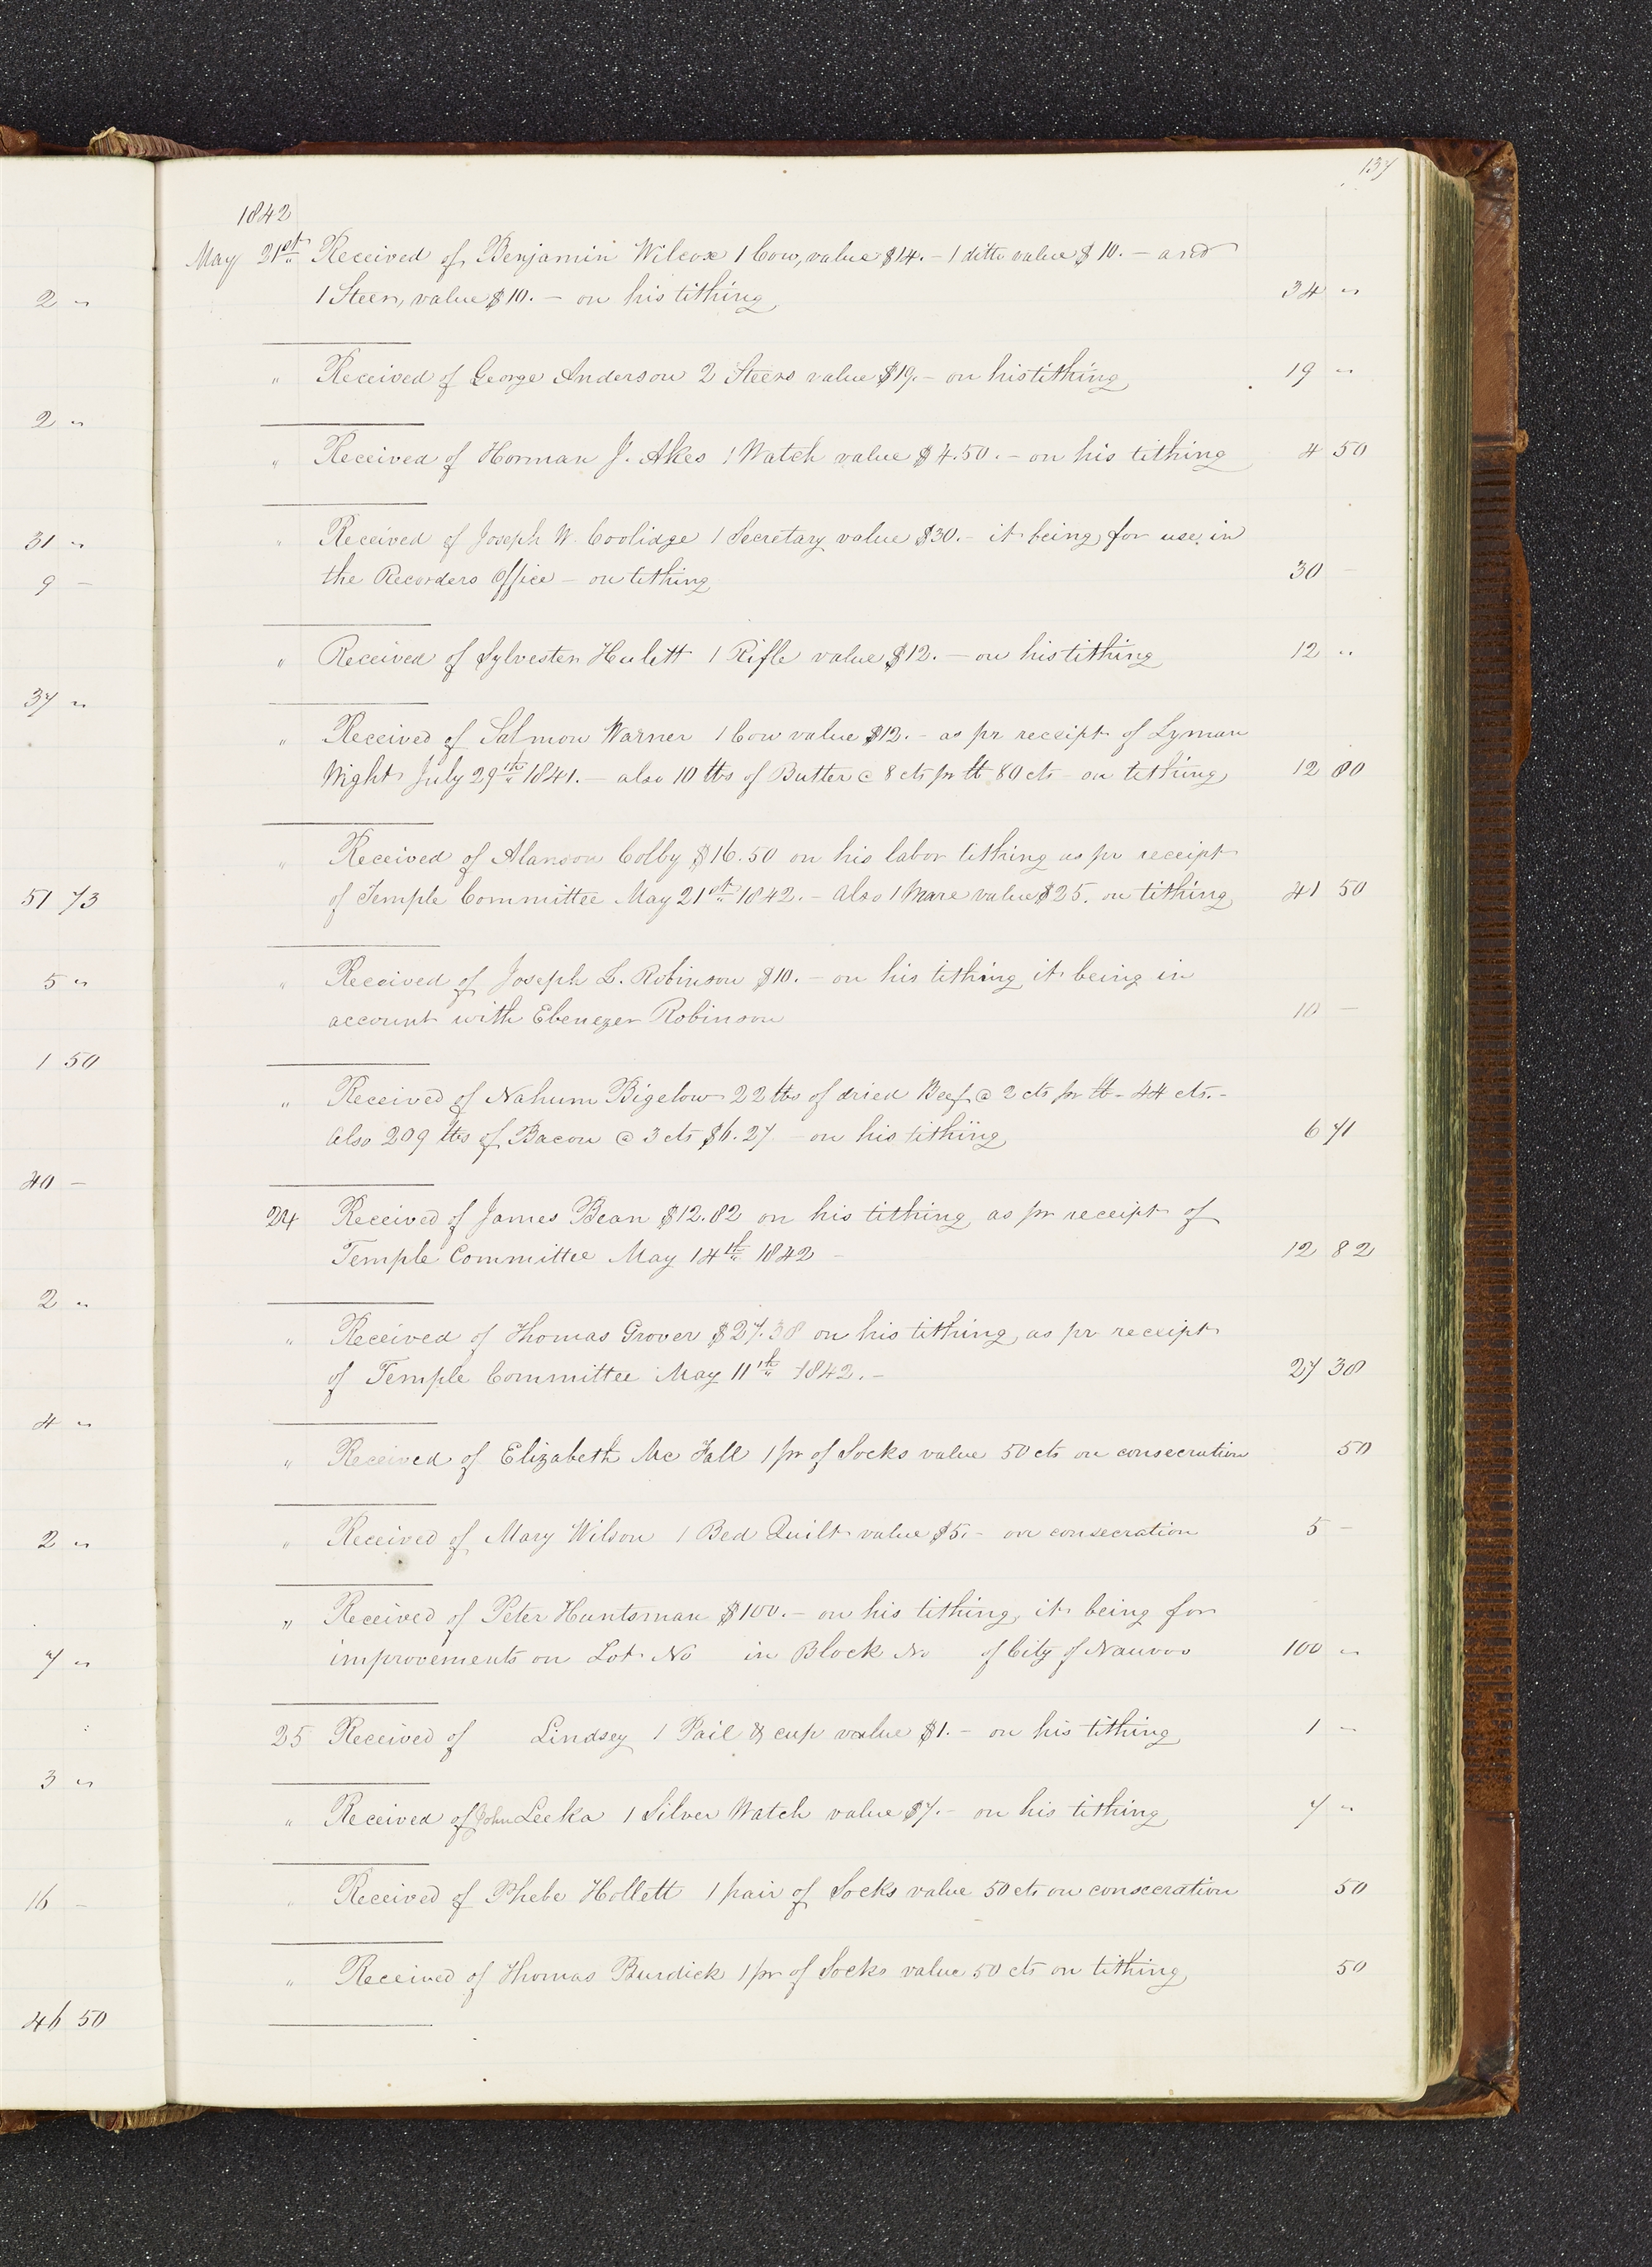 137
1842
May 21st Received of Benjamin Wilcox 1 Cow, value $14.– 1 ditto value $10.– and
2 "
1 Steer, value $10.– on his tithing 34 "
" Received of George Anderson 2 Steers value $19.– on his tithing 19 "
2 "
" Received of Horman J. Akes 1 Watch value $4.50.– on his tithing 4 50
31 "
" Received of Joseph W. Coolidge 1 Secretary value $30.– it being for use in
9 –
the Recorders Office – on tithing 30 –
" Received of Sylvester Hulett 1 Rifle value $12.– on his tithing 12 "
37 "
" Received of Salmon Warner 1 Cow value $12.– as pr receipt of Lyman
Wight July 29th 1841.– also 10 lbs of Butter @ 8 cts pr lb 80 cts – on tithing 12 80
" Received of Alanson Colby $16.50 on his labor tithing as pr receipt
51 73
of Temple Committee May 21st 1842.– Also 1 Mare value $25. on tithing 41 50
5 "
" Received of Joseph L. Robinson $10.– on his tithing it being in
account with Ebenezer Robinson 10 –
1 50
" Received of Nahum Bigelow 22 lbs of dried Beef @ 2 cts pr lb – 44 cts.–
Also 209 lbs of Bacon @ 3 cts $6.27 – on his tithing 6 71
40 –
24 Received of James Bean $12.82 on his tithing as pr receipt of
Temple Committee May 14th 1842 – 12 82
2 "
" Received of Thomas Grover $27.38 on his tithing as pr receipt
of Temple Committee May 11th 1842.– 27 38
4 "
" Received of Elizabeth Mc Fall 1 pr of Socks value 50 cts on consecration 50
2 "
" Received of Mary Wilson 1 Bed Quilt value $5.– on consecration 5 –
" Received of Peter Huntsman $100.– on his tithing, it being for
7 "
improvements on Lot No in Block No of City of Nauvoo 100 "
25 Received of Lindsey 1 Pail & cup value $1.– on his tithing 1 –
3 "
" Received of John Leeka 1 Silver Watch value $7.– on his tithing 7 "
16 –
" Received of Phebe Hollett 1 pair of Socks value 50 cts on consecration 50
" Received of Thomas Burdick 1 pr of Socks value 50 cts on tithing 50
46 50